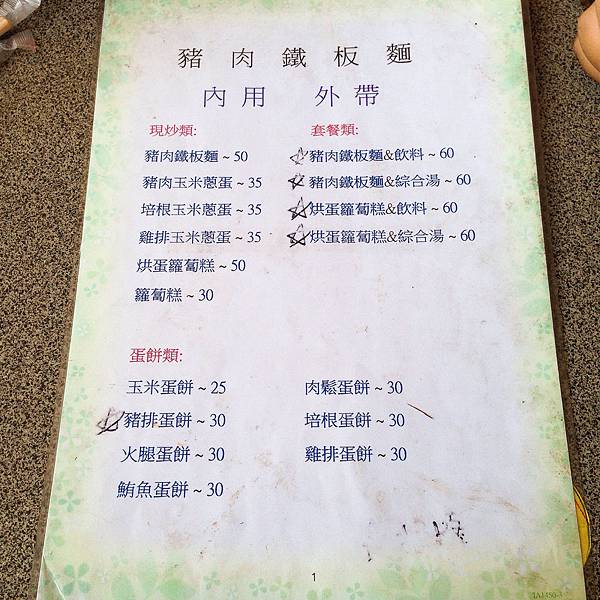 豬肉鐵板麵
內用 外帶
現炒類:
豬肉鐵板麵 ~ 50
豬肉玉米蔥蛋 ~ 35
培根玉米蔥蛋 ~ 35
雞排玉米蔥蛋 ~ 35
烘蛋蘿蔔糕 ~ 50
蘿蔔糕 ~ 30
套餐類:
豬肉鐵板麵&飲料 ~ 60
豬肉鐵板麵&綜合湯 ~ 60
烘蛋蘿蔔糕&飲料 ~ 60
烘蛋蘿蔔糕&綜合湯 ~ 60
蛋餅類:
玉米蛋餅 ~ 25
豬排蛋餅 ~ 30
火腿蛋餅 ~ 30
鮪魚蛋餅 ~ 30
肉鬆蛋餅 ~ 30
培根蛋餅 ~ 30
雞排蛋餅 ~ 30
1